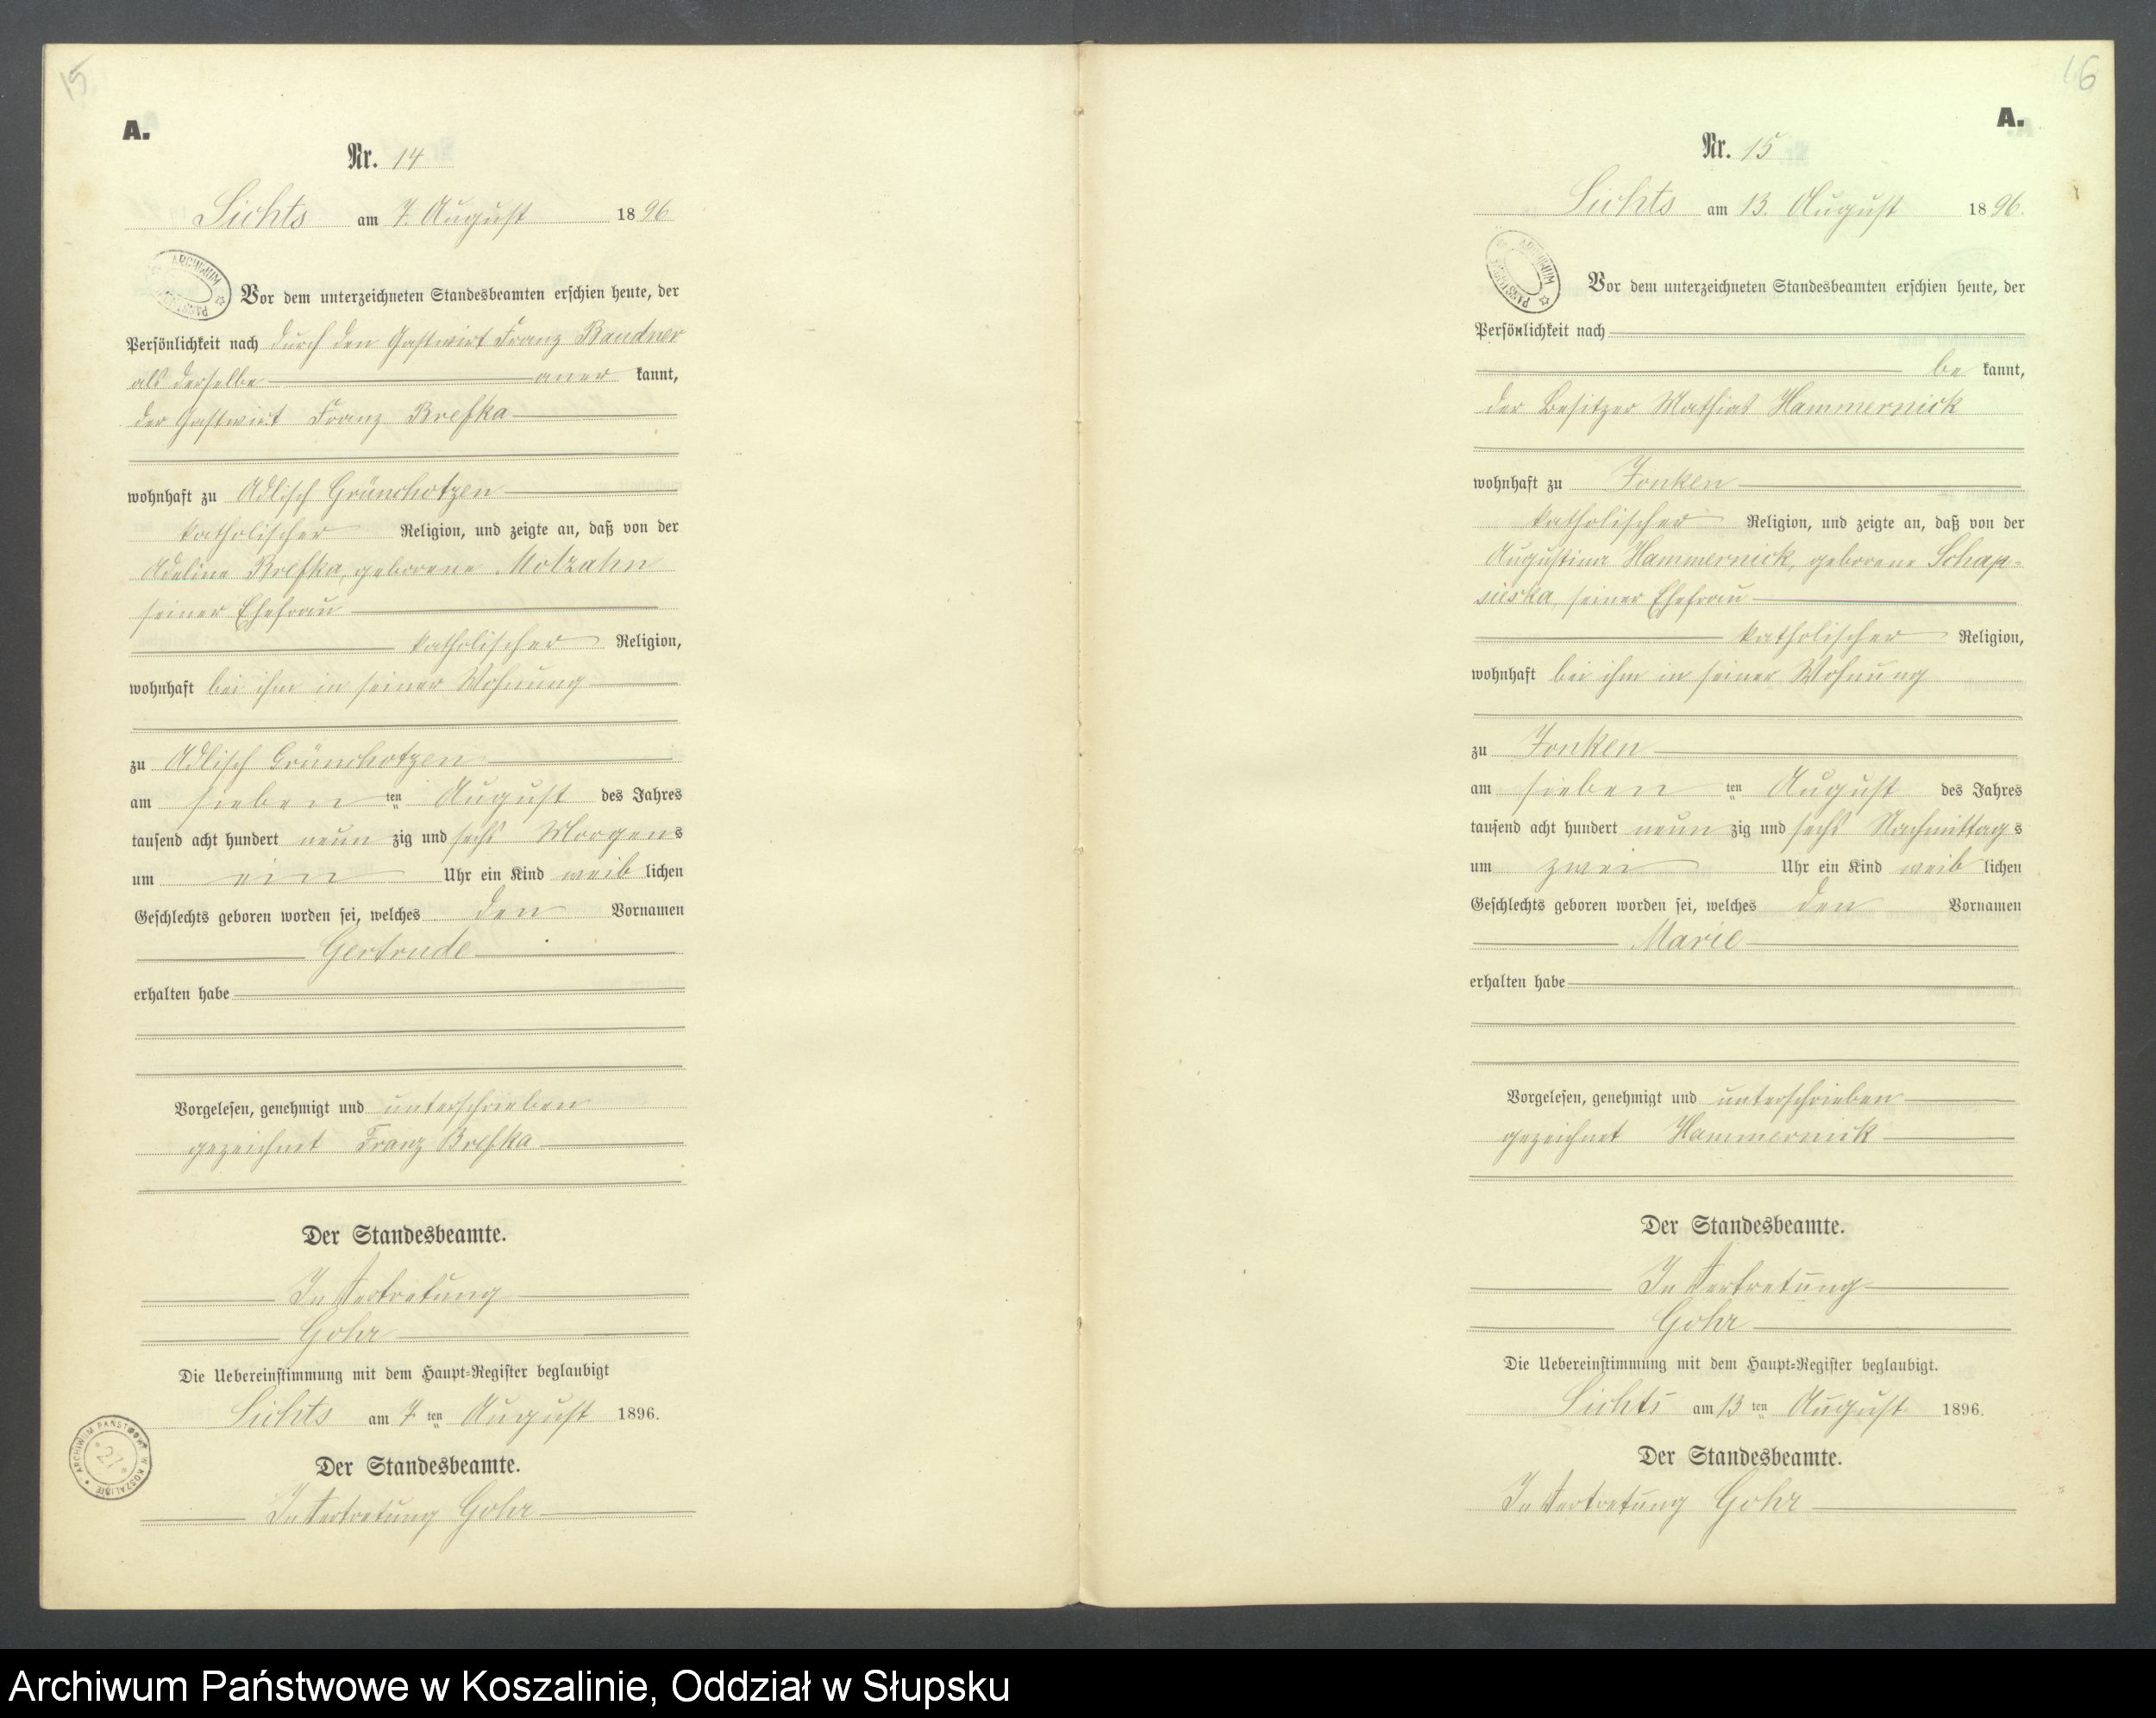 15
A.
Nr. 14
Lichts am 7. August 1896
Vor dem unterzeichneten Standesbeamten erschien heute, der
Persönlichkeit nach durch den Gastwirt Franz Bandner
als derselbe aner kannt,
der Gastwirt Franz Brefka
wohnhaft zu Adlisch Grünchotzen
katholischer Religion, und zeigte an, daß von der
Adeline Brefka, geborene Molzahn
seiner Ehefrau
katholischer Religion,
wohnhaft bei ihm in seiner Wohnung
zu Adlisch Grünchotzen
am sieben ten August des Jahres
tausend acht hundert neun zig und sechs Morgens
um ein Uhr ein Kind weib lichen
Geschlechts geboren worden sei, welches den Vornamen
Gertrude
erhalten habe
Vorgelesen, genehmigt und unterschrieben
gezeichnet Franz Brefka
Der Standesbeamte.
In Vertretung
Gohr
Die Uebereinstimmung mit dem Haupt-Register beglaubigt
Lichts am 7. ten August 1896.
Der Standesbeamte.
In Vertretung Gohr
ARCHIWUM PAŃSTWOWE W KOSZALINIE
27
16
A.
Nr. 15
Lichts am 13. August 1896.
ARCHIWUM
Vor dem unterzeichneten Standesbeamten erschien heute, der
Persönlichkeit nach
be kannt,
der Besitzer Mathias Hammernick
wohnhaft zu Jonken
katholischer Religion, und zeigte an, daß von der
Augustine Hammernick, geborene Schap-
sieska, seiner Ehefrau
katholischer Religion,
wohnhaft bei ihm in seiner Wohnung
zu Jonken
am sieben ten August des Jahres
tausend acht hundert neun zig und sechs Nachmittags
um zwei Uhr ein Kind weib lichen
Geschlechts geboren worden sei, welches den Vornamen
Marie
erhalten habe
Vorgelesen, genehmigt und unterschrieben
gezeichnet Hammernick
Der Standesbeamte.
In Vertretung
Gohr
Die Uebereinstimmung mit dem Haupt-Register beglaubigt.
Lichts am 13 ten August 1896.
Der Standesbeamte.
In Vertretung Gohr
Archiwum Państwowe w Koszalinie, Oddział w Słupsku